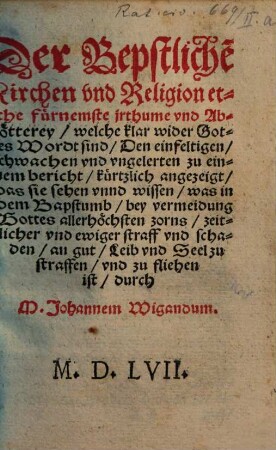 Rat. civ. 669/II. a
Der Bepstlichē
Kirchen vnd Religion et-
che fürnemste jrthume vnd Ab-
götterey / welche klar wider Got-
es Wordt sind / Den einfeltigen /
schwachen vnd vngelerten zu ein-
em bericht / kürtzlich angezeigt /
das sie sehen vnnd wissen / was in
dem Bapstumb / bey vermeidung
Gottes allerhöchsten zorns / zeit-
licher vnd ewiger straff vnd scha-
den / an gut / Leib vnd Seel zu
straffen / vnd zu fliehen
ist / durch
M. Johannem Wigandum.
M. D. LVII.